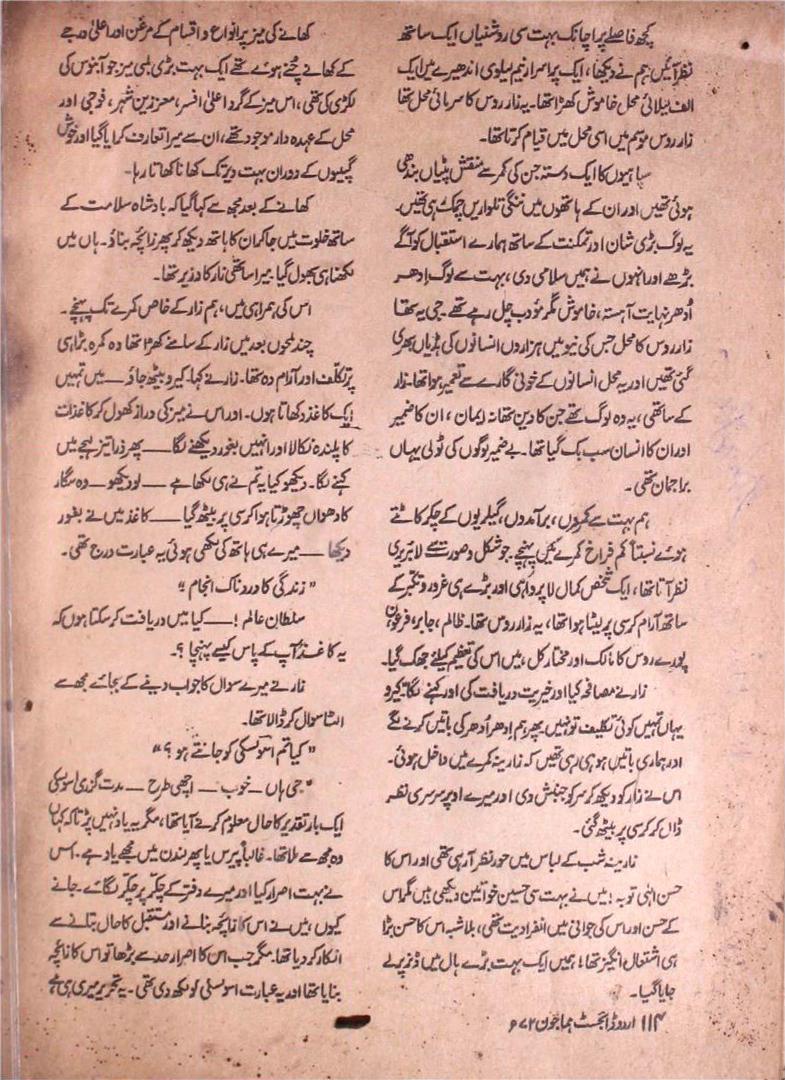 کچھ فاصلے پر اچانک بہت سی روشنیاں ایک ساتھ
نظر آئیں ہم نے دیکھا، ایک پراسرار نیم بیلوی اندھیرے میں ایک
الف لیلائی محل خاموش کھڑا تھا۔ یہ زار روس کا سرمائی محل تھا
زار روس موسم میں اسی محل میں قیام کرتا تھا۔
سپاہیوں کا ایک دستہ جن کی کمر سے منقش پٹیاں بندھی
ہوئی تھیں اور ان کے ہاتھوں میں ننگی تلواریں چمک رہی تھیں۔
یہ لوگ بڑی شان اور تمکنت کے ساتھ ہمارے استقبال کو آگے
بڑھے اور انہوں نے ہمیں سلامی دی، بہت سے لوگ اِدھر
اُدھر نہایت آہستہ، خاموش مگر مؤدب چل رہے تھے۔ جی یہ تھا
زار روس کا محل جس کی نیو میں ہزاروں انسانوں کی ہڈیاں بھری
گئی تھیں اور یہ محل انسانوں کے خونی گارے سے تعمیر ہوا تھا۔ زار
کے ساتھی، یہ وہ لوگ تھے جن کا دین تھا نہ ایمان، ان کا ضمیر
اور ان کا انسان سب بک گیا تھا۔ بے ضمیر لوگوں کی ٹولی یہاں
براجمان تھی۔
ہم بہت سے کمروں، برآمدوں، گیلریوں کے چکر کاٹتے
ہوئے نسبتاً کم فراخ کمرے میں پہنچے۔ جو شکل و صورت سے لائبریری
نظر آتا تھا، ایک شخص کمال لاپرواہی اور بڑے ہی غرور و تکبر کے
ساتھ آرام کرسی پر لیٹا ہوا تھا، یہ زار روس تھا۔ ظالم، جابر، فرعون
پورے روس کا مالک اور مختار کل، میں اس کی تعظیم کیلئے جھک گیا۔
زار نے مصافحہ کیا اور خیریت دریافت کی اور کہنے لگا۔ کیرو
یہاں تمہیں کوئی تکلیف تو نہیں پھر ہم اِدھر اُدھر کی باتیں کرنے لگے
اور ہماری باتیں ہو ہی رہی تھیں کہ زارینہ کمرے میں داخل ہوئی۔
اس نے زار کو دیکھ کر سر کو جنبش دی اور میرے اوپر سرسری نظر
ڈال کر کرسی پر بیٹھ گئی۔
زارینہ شب کے لباس میں حور نظر آ رہی تھی اور اس کا
حسن الٰہی توبہ! میں نے بہت سی حسین خواتین دیکھی ہیں مگر اس
کے حسن اور اس کی جوانی میں انفرادیت تھی، بلاشبہ اس کا حسن بڑا
ہی اشتعال انگیز تھا! ہمیں ایک بہت بڑے ہال میں ڈنر پر لے
جایا گیا۔
کھانے کی میز پر انواع و اقسام کے مرغن اور اعلیٰ درجے
کے کھانے چُنے ہوئے تھے ایک بہت بڑی لمبی میز جو آبنوس کی
لکڑی کی تھی، اس میز کے گرد اعلیٰ افسر، معززین شہر، فوجی اور
محل کے عہدہ دار موجود تھے، ان سے میرا تعارف کرایا گیا اور خوش
گپیوں کے دوران بہت دیر تک کھانا کھاتا رہا۔
کھانے کے بعد مجھ سے کہا گیا کہ بادشاہ سلامت کے
ساتھ خلوت میں جا کر ان کا ہاتھ دیکھ کر پھر زائچہ بناؤ۔ ہاں میں
لکھنا ہی بھول گیا۔ میرا ساتھی زار کا وزیر تھا۔
اس کی ہمراہی میں، ہم زار کے خاص کمرے تک پہنچے۔
چند لمحوں بعد میں زار کے سامنے کھڑا تھا وہ کمرہ بڑا ہی
پر تکلف اور آرام دہ تھا۔ زار نے کہا۔ کیرو بیٹھ جاؤ ـــ میں تمہیں
ایک کاغذ دکھاتا ہوں۔ اور اس نے میز کی دراز کھول کر کاغذات
کا پلندہ نکالا اور انہیں بغور دیکھنے لگا ـــ پھر ذرا تیز لہجے میں
کہنے لگا۔ دیکھو کیا یہ تم نے ہی لکھا ہے ـــ لو دیکھو ـــ وہ سگار
کا دھواں چھوڑتا ہوا کرسی پر بیٹھ گیا ـــ کاغذ میں نے بغور
دیکھا ـــ میرے ہی ہاتھ کی لکھی ہوئی یہ عبارت درج تھی۔
”زندگی کا دردناک انجام“
سلطان عالم! ـــ کیا میں دریافت کر سکتا ہوں کہ
یہ کاغذ آپ کے پاس کیسے پہنچا؟
زار نے میرے سوال کا جواب دینے کے بجائے مجھ سے
الٹا سوال کر ڈالا تھا۔
”کیا تم اسوسکی کو جانتے ہو؟“
”جی ہاں ـــ خوب ـــ اچھی طرح ـــ مدت گزری اسوسکی
ایک بار تقدیر کا حال معلوم کرنے آیا تھا، مگر یہ یاد نہیں پڑتا کہ کہاں
وہ مجھ سے ملا تھا۔ غالباً پیرس یا پھر لندن میں مجھے یاد ہے۔ اس
نے بہت اصرار کیا اور میرے دفتر کے چکر پر چکر لگائے۔ جانے
کیوں، میں نے اس کا زائچہ بنانے اور مستقبل کا حال بتانے سے
انکار کر دیا تھا۔ مگر جب اس کا اصرار حد سے بڑھا تو اس کا زائچہ
بنایا تھا اور یہ عبارت اسوسکی کو لکھ دی تھی۔ یہ تحریر میری ہی ہے
۱۱۴ اردو ڈائجسٹ ہما جون ۷۲ء